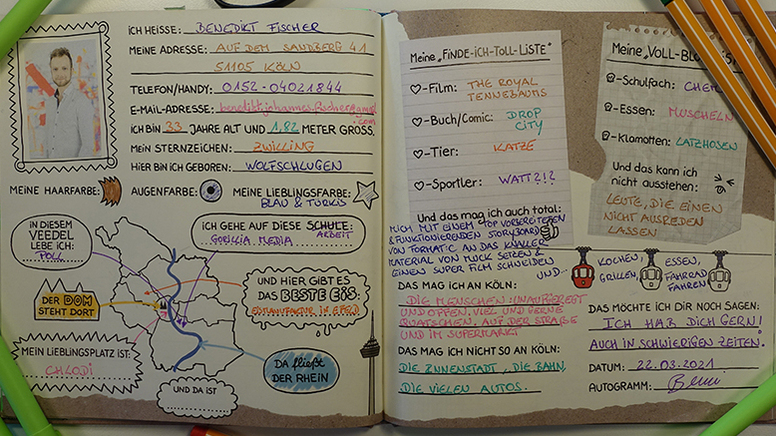 ICH HEISSE: BENEDIKT FISCHER
MEINE ADRESSE: AUF DEM SANDBERG 41
51105 KÖLN
TELEFON/HANDY: 0152-04021844
E-MAIL-ADRESSE:
.com
ICH BIN 33 JAHRE ALT UND 1,82 METER GROSS.
MEIN STERNZEICHEN: ZWILLING
HIER BIN ICH GEBOREN: WOLFSCHLUGEN
MEINE HAARFARBE: AUGENFARBE: MEINE LIEBLINGSFARBE:
BLAU & TÜRKIS
IN DIESEM
VEEDEL
LEBE ICH:
POLL
ICH GEHE AUF DIESE SCHULE:
ARBEIT
GORILLA MEDIA
DER DOM
STEHT DORT
UND HIER GIBT ES
DAS BESTE EIS:
EISMANUFAKTUR IN EHRENFELD
MEIN LIEBLINGSPLATZ IST:
CHLODI
DA fließt
DER RHEIN
UND DA IST
Meine „FINDE-ICH-TOLL-LISTE"
-Film: THE ROYAL
TENNEBAUMS
-Buch/Comic: DROP
CITY
-Tier: KATZE
-Sportler: WATT?!?
Und das mag ich auch total:
MICH MIT EINEM TOP VORBEREITETEN
& FUNKTIONIERENDEN STORYBOARD
VON TORMATIC AN DAS KNALLER
MATERIAL VON MUCK SETZEN &
EINEN SUPER FILM SCHNEIDEN
UND... KOCHEN, ESSEN,
GRILLEN, FAHRRAD
FAHREN
DAS MAG ICH AN KÖLN:
DIE MENSCHEN: UNAUFGEREGT
UND OFFEN. VIEL UND GERNE
QUATSCHEN. AUF DER STRAßE
UND IM SUPERMARKT
DAS MAG ICH NICHT SO AN KÖLN:
DIE INNENSTADT, DIE BAHN,
DIE VIELEN AUTOS.
Meine „VOLL-
-Schulfach: CHEM
-Essen: MUSCHELN
-Klamotten: LATZHOSEN
Und das kann ich
nicht ausstehen:
LEUTE, DIE EINEN
NICHT AUSREDEN
LASSEN
DAS MÖCHTE ICH DIR NOCH SAGEN:
ICH HAB DICH GERN!
AUCH IN SCHWIERIGEN ZEITEN.
DATUM: 22.03.2021
AUTOGRAMM: